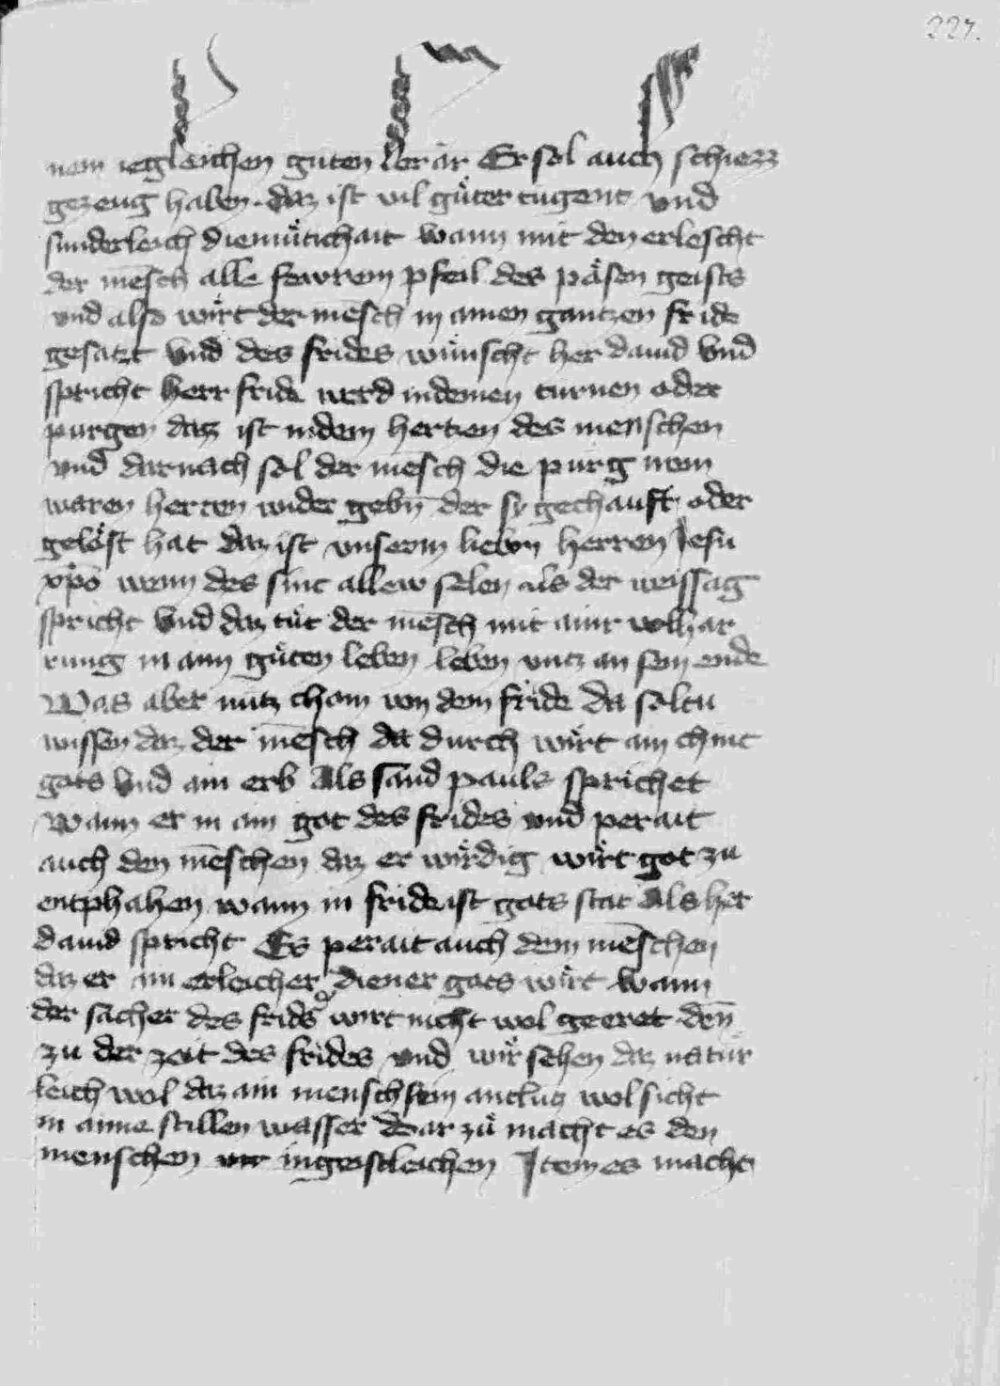 227.
nem iegleichen guten lerär Er sol auch schiezz
gezeug haben. daz ist vil gůter tugent vnd
sunderleich diemůtichait wann mit den erlescht
der mēsch alle fewrein pfeil des päsen geists
vnd also wirt der mēsch in ainen gantzen fride
gesatzt vnd des frides wünscht her dauid vnd
spricht herr frid werd in deinen turnen oder
purgen daz ist in dem hertzen des menschen
vnd darnach sol der mēsch die purg irem
waren herren wider gebn̄ der sy gechauft oder
gelöst hat daz ist vnserm liebn̄ herren Jesu
xp̄o wenn des sint allew selen als der weissag
spricht vnd daz tůt der mēsch mit ainr volhar
rung in aim gůten leben leben vntz an sein ende
Was aber nutz chom von dem fride da soltu
wissen daz der mēsch da durch wirt ain chint
gots vnd ain erb Als sand pauls sprichet
Wann er in ain got des frides vnd perait
auch den mēschen daz er wirdig wirt got zu
entphahen wann in frid ist gots stat Als her
dauid spricht Es perait auch dem mēschen
daz er ain erleicher diener gots wirt wann
der sacher des frids wirt nicht wol geeret den̄
zu der zeit des frides vnd wir sehen daz natür
leich wol daz ain mensch sein antlutz wol sicht
in aime stillen wasser dar zů macht es den
menschen ingeistleichen Item es macht